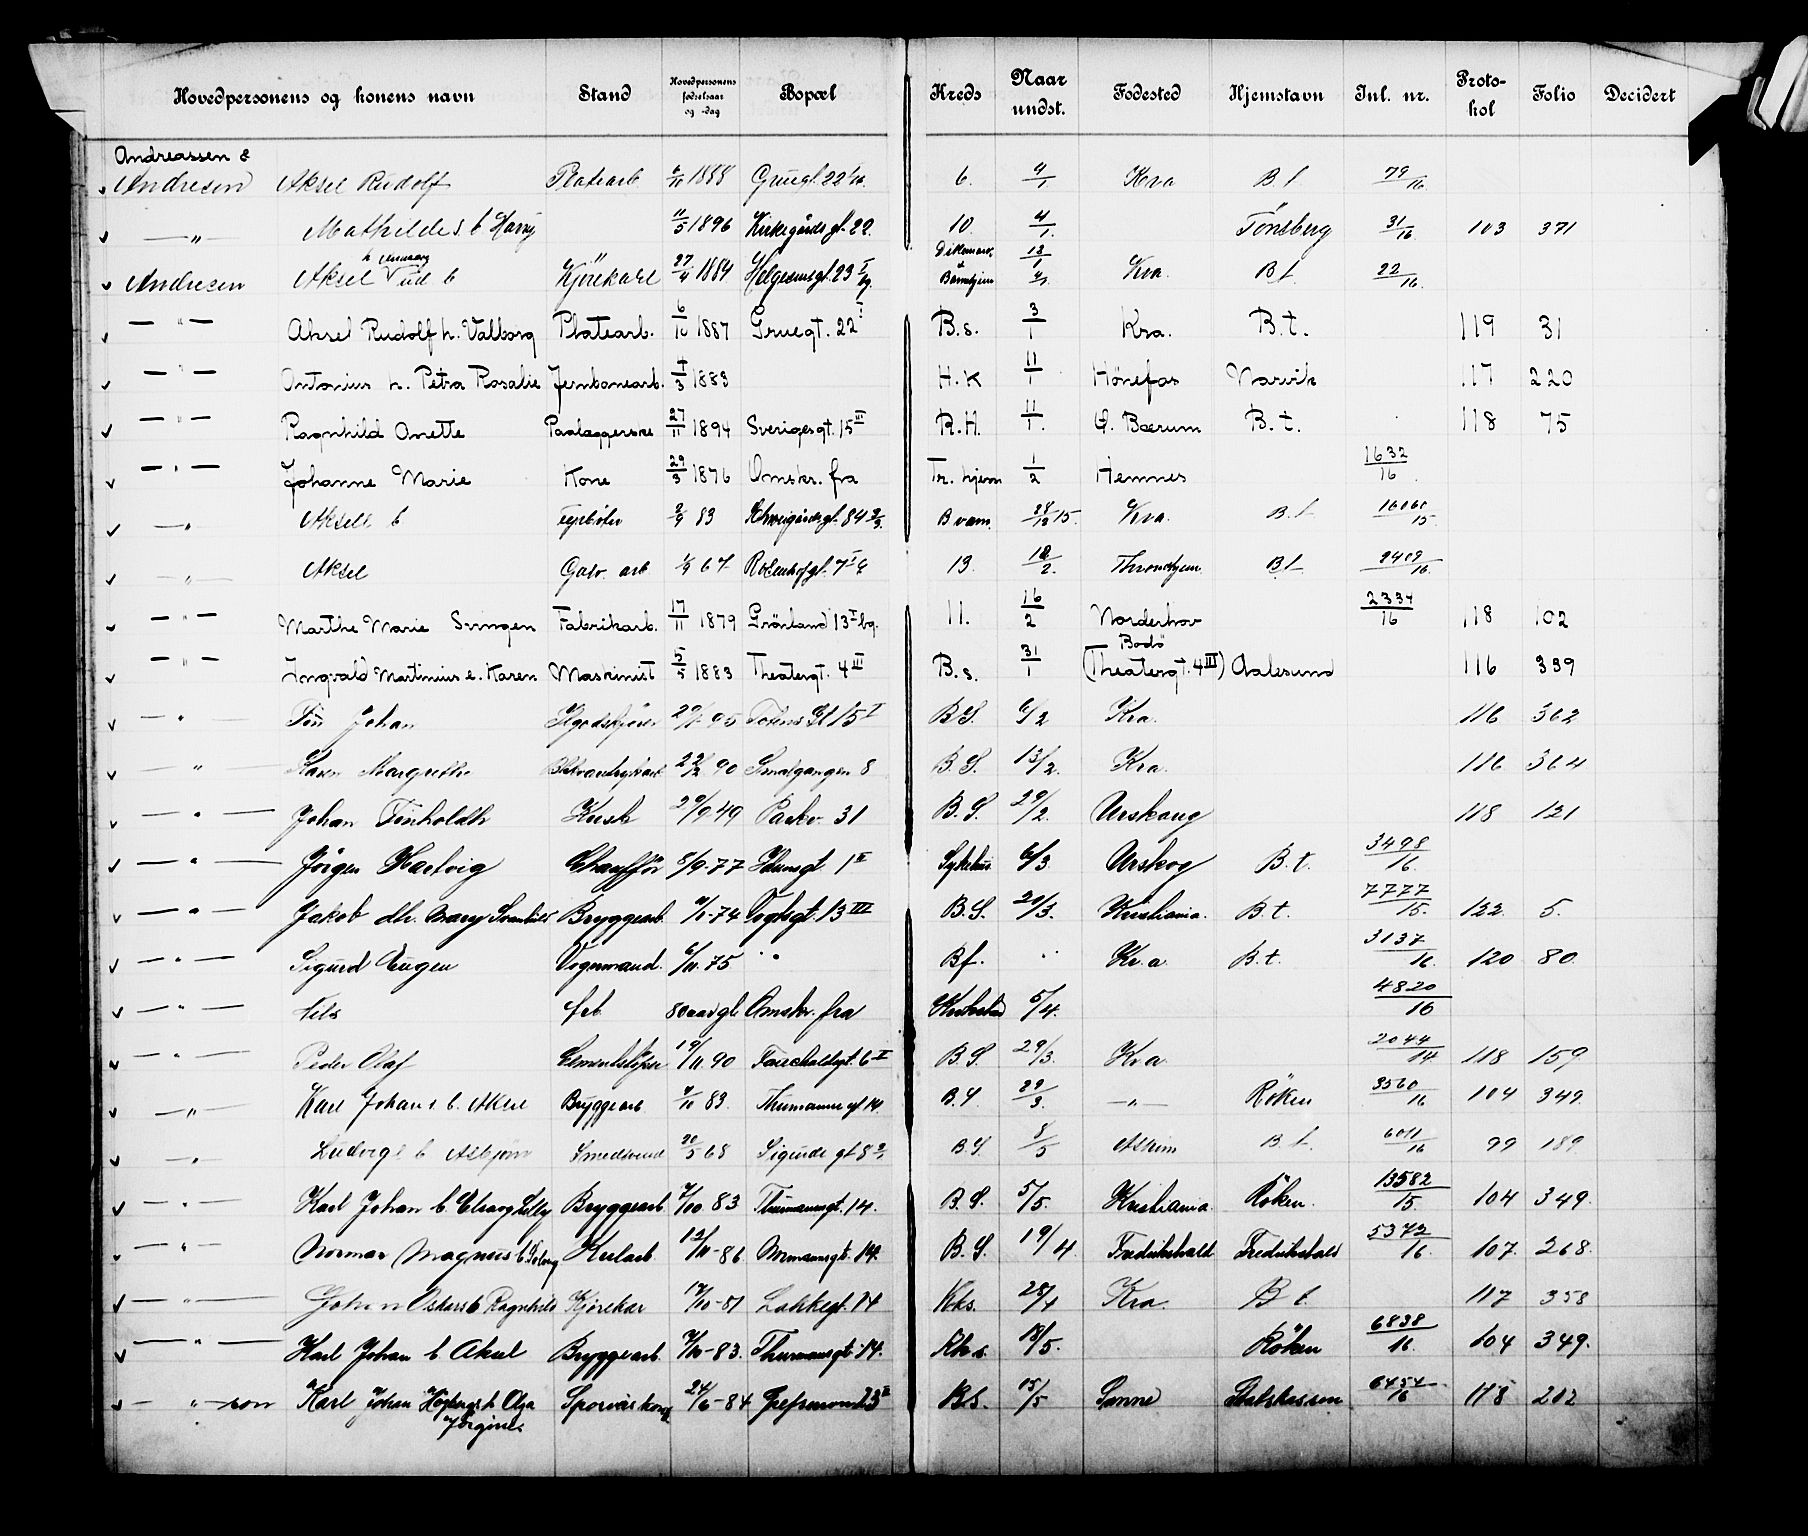 Hovedpersonens og konens navn Stand Hovedpersonens fødselsaar og -dag Bopæl Kreds Naar undst. Fødested Hjemstavn Jnl. nr. Proto-kol Folio Decidert
Andreassen &
Andresen Aksel Rudolf Platearb 6/11 1888 Gruegt. 22 6. 4/1 Kra B.t. 79/16.
— " — Mathilde s. b Harry 11/5 1896 Kirkegårdsgt. 22. 10. 4/1. Tönsberg 31/16. 103 371
Andresen Aksel b Kjörekarl 27/4 1884 Helgesensgt. 23 I Dikemark & Barnehjem 12/1 4/1 Kra. B.t. 22/16.
— " — Aksel Rudolf h. Valborg Platearb. 6/10 1887 Gruegt. 22 B.s. 3/1 Kra. B.t. 119 31
— " — Antonius h. Petra Rosalie Jernbanearb. 1/3 1883 H.K 11/1 Hönefos Narvik 117 220
— " — Ragnhild Anette Paalæggerske 27/11 1894 Sverigesgt. 15 III R.H. 11/1. Ö. Bærum B.t. 118 75
— " — Johanne Marie Kone 29/3 1876 Omskr. fra Tr. hjem 1/2 Hemnes 1632/16.
— " — Aksel b Fyrböter 2/9 83 Schweigårdsgt. 84 2/3. B vam. 28/12 15. Kra. B.t 16060/15.
— " — Aksel Galv. arb 1/9 67 Rosenhofgt. 7 I 13. 18/2. Throndhjem B.t. 9409/16.
— " — Marthe Marie Svingen Fabrikarb. 17/11 1879 Grönland 13 I bg. 11. 16/2 Norderhov 2334/16 118 102
— " — Ingvald Martinius e. Karen Maskinist 5/5 1883 Theatergt. 4 III B.s. 31/1 Bodö (Theatergt. 4 III) Aalesund 116 339
— " — Johan 95 Totens Gt 15 I B.S. 6/2 Kra. 116 362
— " — Karen Margrethe 22/12. 90 Smalgangen 8 B.S. 13/2. Kra. 116 364
— " — Johan Kusk 29/9 49 Parkv. 31 B.S. 29/2. Urskoug 118 121
— " — Jörgen Hartvig Chauffför 5/9-77 1 II Sykehus 6/3 Urskog B.t. 3498/16.
— " — Jakob dh. Bryggearb. 9/1-74 Vogtsgt. 13 III B.S. 20/3. Kristiania. B.t. 7777/15. 122. 5.
— " — Sigurd Eugen Vognmand. 6/11. 75 " B.f. " Kr.a B.t. 3137/16. 120 80.
— " — Nils 80 aar gl Omskr. fra 5/4. 4820/16
— " — Peder Olaf Cementstöper 19/11. 90 6 II B.S. 29/3. Kra 2044/14 118 159.
— " — Karl Johan s. b. Aksel Bryggearb 7/10 83. Thurmannsgt 14. B.S 29/3. — " — Röken 3560/16 104 349.
— " — Ludvig b Asbjörn Smedsvend 20/5 68 Sigurds gt 8 2/1 B.S. 8/5 Askim B.t. 6011/16 99 189
— " — Karl Johan b Bryggearb 7/10 83 Thurmannsgt. 14. B.S. 5/5. Kristiania Röken. 13582/15. 104 349.
— " — Norman Magnus b. Solveig Kularb 12/11-86. Normannsgt. 14. B.S. 19/4 Fredrikshald Fredrikshald 5372/16. 107. 268.
— " — Johan Oskar s b Ragnhild Kjörekar 17/10-81 Lakkegt. 74 Kks. 28/4 Kra. B t. 117 358
— " — Karl Johan b Aksel Bryggearb. 7/10-83. Thurmannsgt. 14. 18/5. Röken 6838/16. 104 349.
— " —son Karl Johan h Olga Jörgine 24/6-84 B.S. 15/5 Statskassen 6454/16 118 202